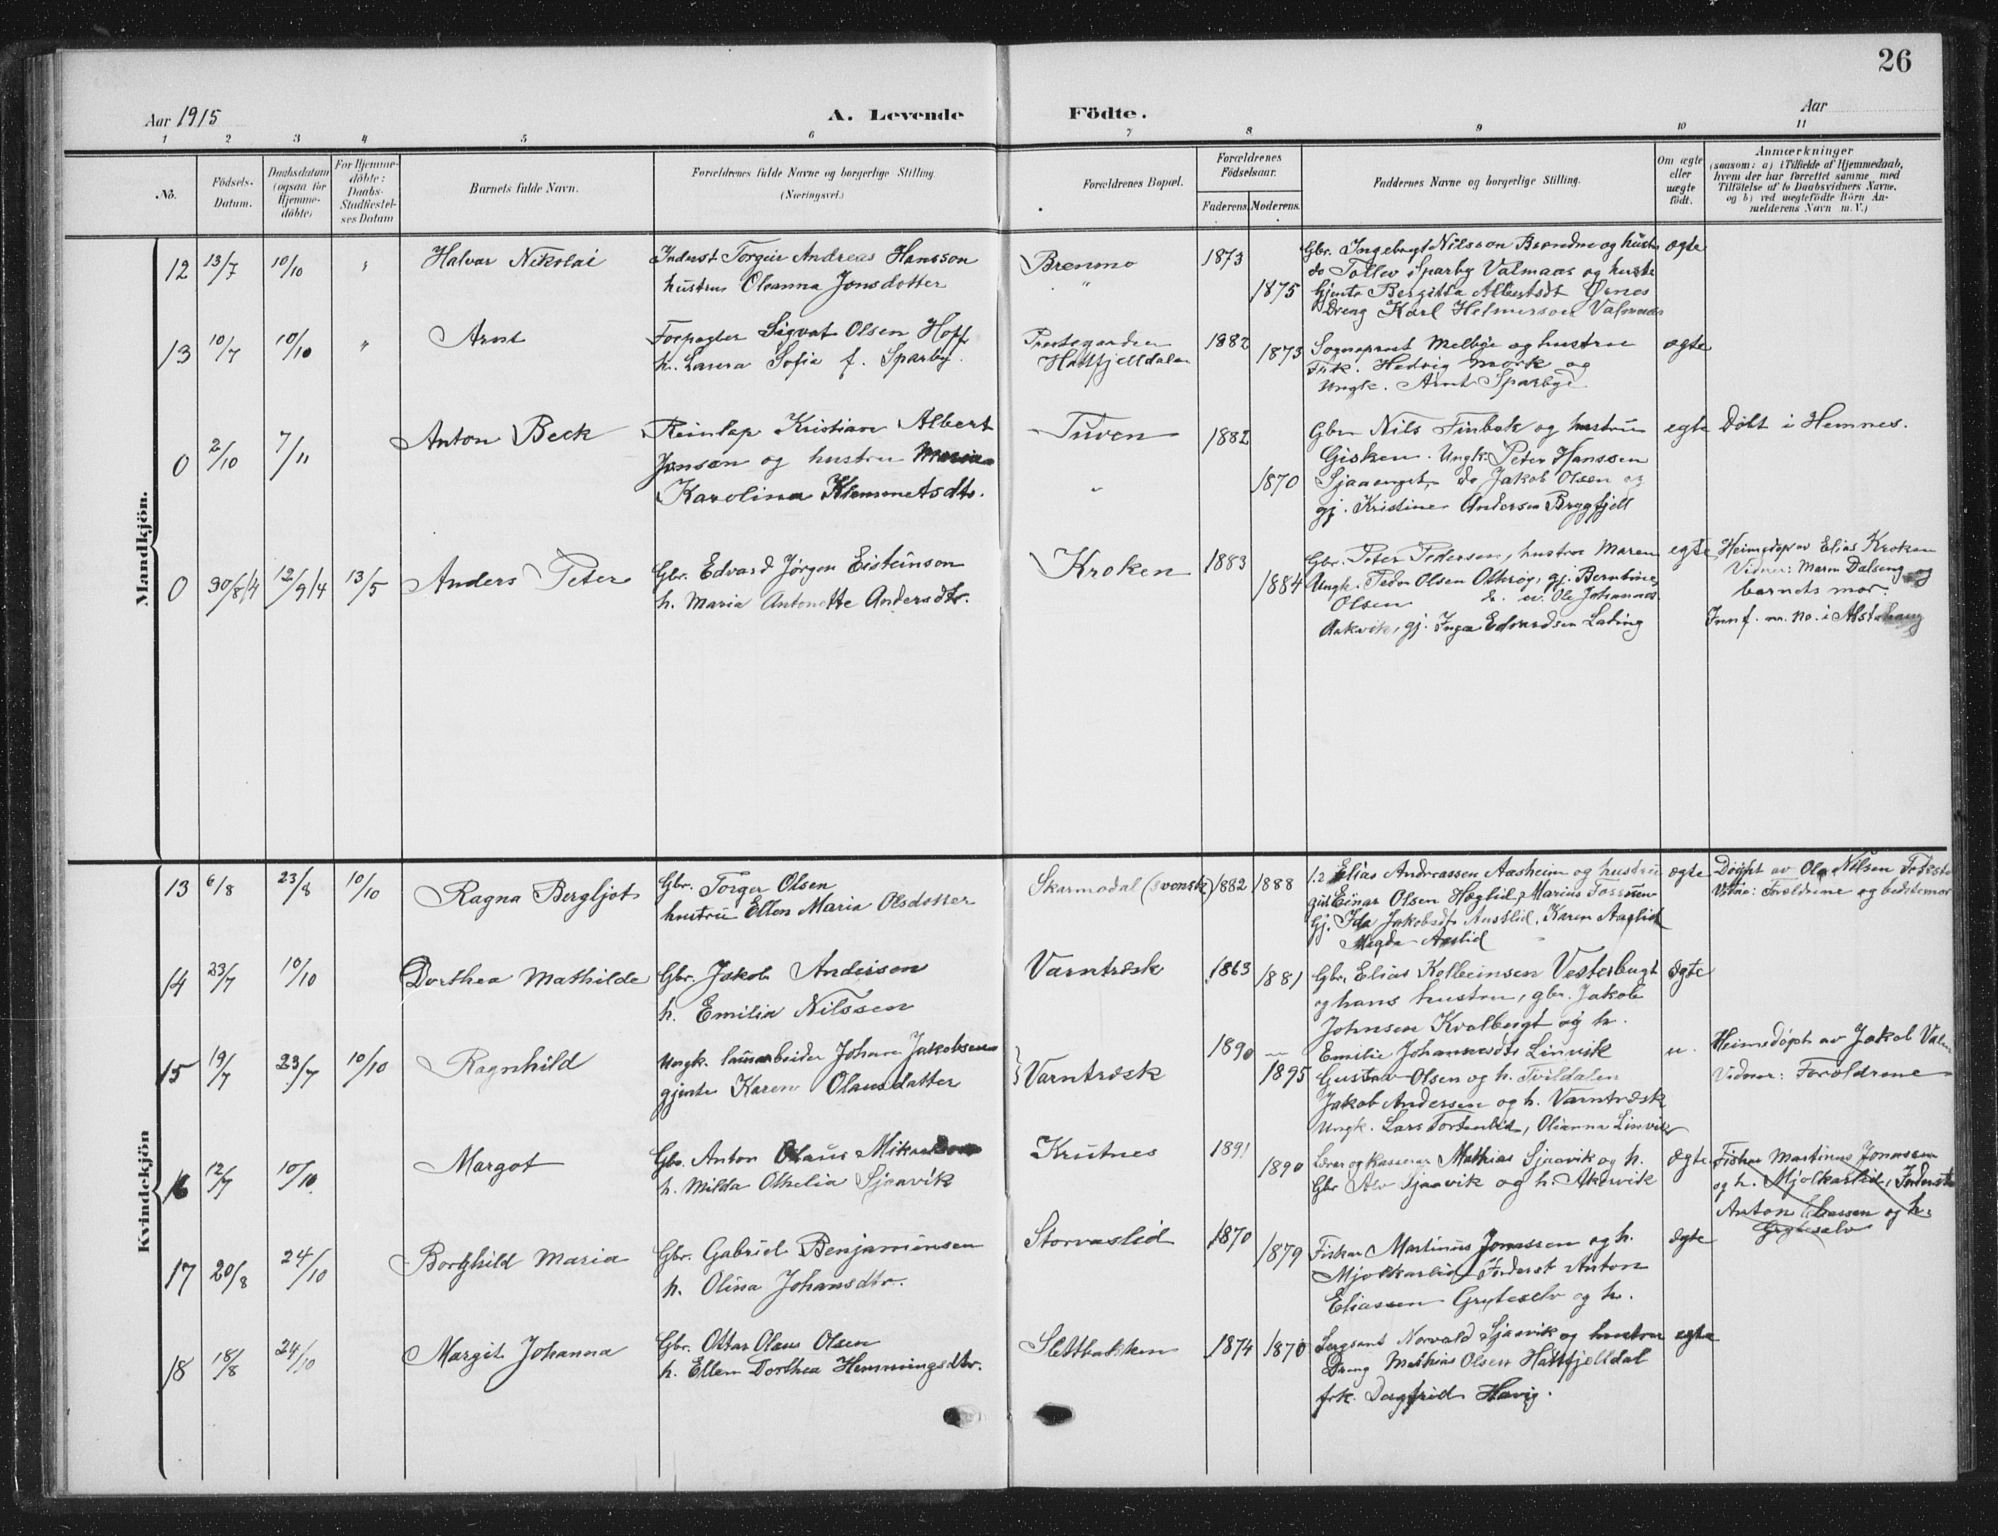 26
Aar 1915
A. Levende
Födte.
Aar
1 2 3 4 5 6 7 8 9 10 11
No.
Födsels-Datum.
Daabsdatum (ogsaa for Hjemme-döbte)
For Hjemme-döbte: Daabs-Stadfæstelses Datum
Barnets fulde Navn.
Forældrenes fulde Navne og borgerlige Stilling.
(Næringsvei.)
Forældrenes Bopæl.
Forældrenes Födselsaar.
Faderens. Moderens.
Faddernes Navne og borgerlige Stilling.
Om ægte eller uægte födt.
Anmærkninger
(saasom: a) i Tilfælde af Hjemmedaab,
hvem der har forrettet samme, med
Tilföielse af to Daabsvidners Navne,
og b) ved uægtefödte Börn An-
melderens Navn m. V.)
Mandkjön.
12 13/7 10/10 " Halvar Nikolai
Inderst Torgeir Andreas Hansson
hustru Oleanna Jonsdotter
Brenmo
"
1873
1875
Gbr. Ingebrigt Nilsson og hustru
do Tollev Sparby Valmaas og hustr
Gjenta Bergitta Albertsdt
Dreng Karl Helmerson Valmaas
ægte
13 10/7 10/10 " Arnt
Forpagter Sigvat Olsen Hoff
h. Laura Sofia f. Sparby.
Prestegarden
Hattfjelldalen
1882
1873
Sogneprest Melbye og hustru
Frk. Hedvig Mørk og
Ungk. Arnt Sparbye
ægte
0 2/10 7/11 Anton Beck
Reinlap Kristian Albert
Jonsen og hustru Maria
Karolina Klemmetsdtr.
Tuven
"
1882
1870
Gbr Nils Finbak og hustru
Gisken. Ungk. Peter Hanssen
Sjaaenget, do Jakob Olsen og
gj. Kristine Andersen Brygfjell
egte
Døbt i Hemnes.
0 30/8 14 12/9 14 13/5 Anders Peter
Gbr. Edvard Jørgen Eisteinson
h. Maria Antonette Andersdtr.
Kroken
1883
1884
Gbr. Peter Pedersen, hustru Maren
Ungk. Peder Olsen gj. Berntine
Olsen Ole Johannes
Aakvik, gj. Inga Edvardsen Lading
egte
Heimedøpt av Elias Kroken
Vidner: Maren Dalseng og
barnets mor.
Innf. nr. no. i Alstahaug
Kvindekjön
13 6/8 23/8 10/10 Ragna Bergljot
Gbr. Torger Olsen
hustru Ellen Maria Olsdotter
Skarmodal (svensk)
1882 1888
Elias Andreassen Aasheim og hustru
Einar Olsen Hæglid, Marius
Gj. Ida Jakobsdt Austlid, Karen Aaslid
Magda Aaslid
ægte
Døpt av Ole Nilsen
Vitne: Foreldrene og bedstemor
14 23/7 10/10 Dorthea Mathilde
Gbr. Jakob Anderson
h. Emilia Nilssen
Varntræsk
1863
1881
Gbr. Elias Kolbeinsen Vesterbugt
og hans hustru, gbr. Jakob
Johnsen Kvalbugt og h.
ægte
15 19/7 23/7 10/10 Ragnhild
Ungk. lausarbeider Johan Jakobsen
gjente Karen Olausdatter
Varntræsk
1890
1895
Emilie Johannesdtr Linvik
Gustav Olsen og h. Tvildalen
Jakob Andersen og h. Varntræsk
Ungk. Lars Fortenlid, Olianna Linvik
u.
Heimedøpt av Jakob
Vidner: Foreldrene
16 12/7 10/10 Margot
Gbr. Anton Olaus
h. Milda Othelia Sjaavik
Krutnes
1891
1890
Lærer og kasserer Mathias Sjaavik og h.
Gbr Alv Sjaavik og h. Akervik
ægte
Fisker Martinus Jonassen
og h. Mjolkarlid, Inderst
Anton Eliassen og h.
Gryteselv
17 20/8 24/10 Borghild Maria
Gbr. Gabriel Benjaminsen
h. Olina Johansdtr.
Storvaslid
1870
1879
Fisker Martinus Jonassen og h.
Mjolkarlid, Inderst Anton
Eliassen Gryteselv og h.
ægte
18 18/8 24/10 Margit Johanna
Gbr. Ottar Olaus Olsen
h. Ellen Dorthea Hemmingsdtr.
Slettbakken
1874 1870
Sergeant Norvald Sjaavik og hustru
Dreng Mathias Olsen Hattfjelldal
frk. Dagfrid Havig.
egte